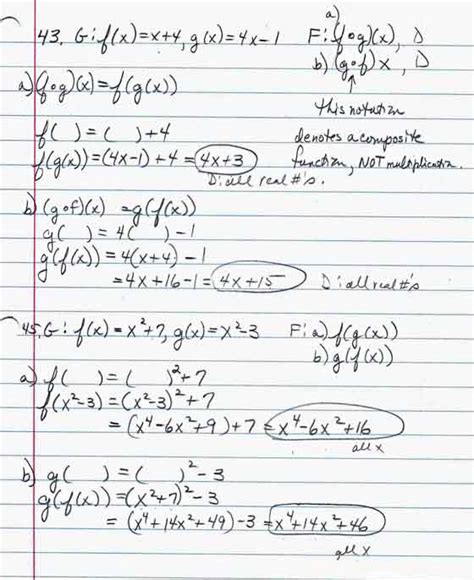 43. G: f(x)=x+4, g(x)=4x-1 F: a) (f∘g)(x), D
b) (g∘f)x, D
a) (f∘g)(x)=f(g(x))
this notation
denotes a composite
function, NOT multiplication.
f( ) = ( )+4
f(g(x))=(4x-1)+4=4x+3
D: all real #'s.
b) (g∘f)(x) =g(f(x))
g( ) = 4( )-1
g(f(x)) = 4(x+4)-1
=4x+16-1=4x+15 D: all real #'s
45. G: f(x)=x²+7, g(x)=x²-3 F: a) f(g(x))
b) g(f(x))
a) f( ) = ( )²+7
f(x²-3)=(x²-3)²+7
= (x⁴-6x²+9)+7=x⁴-6x²+16
all x
b) g( ) = ( )²-3
g(f(x))=(x²+7)²-3
= (x⁴+14x²+49)-3=x⁴+14x²+46
all x